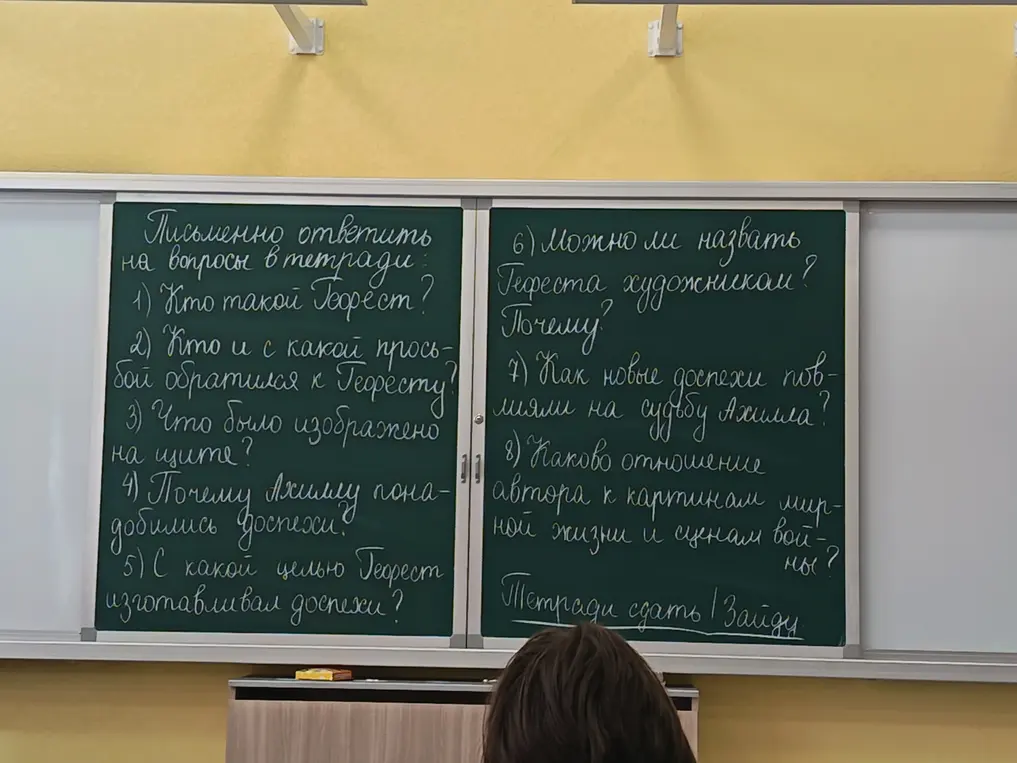 Письменно ответить
на вопросы в тетради:
1) Кто такой Гефест?
2) Кто и с какой прось-
бой обратился к Гефесту?
3) Что было изображено
на щите?
4) Почему Ахиллу пона-
добились доспехи?
5) С какой целью Гефест
изготавливал доспехи?
6) Можно ли назвать
Гефеста художником?
Почему?
7) Как новые доспехи пов-
лияли на судьбу Ахилла?
8) Каково отношение
автора к картинам мир-
ной жизни и сценам вой-
ны?
Тетради сдать! Зайду